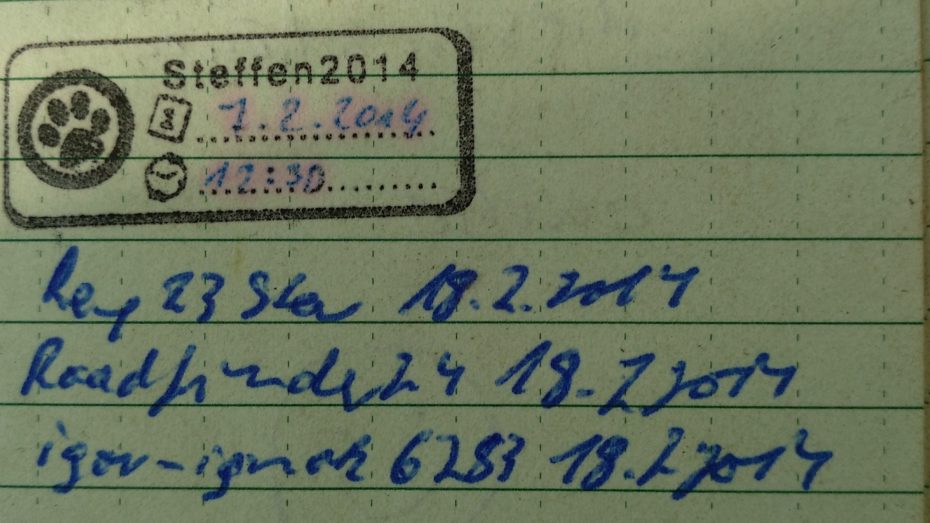 Steffen2014
7.2.2014
12:30
23 18.2.2014
24 18.2.2014
igor-ignok 6283 18.2.2014